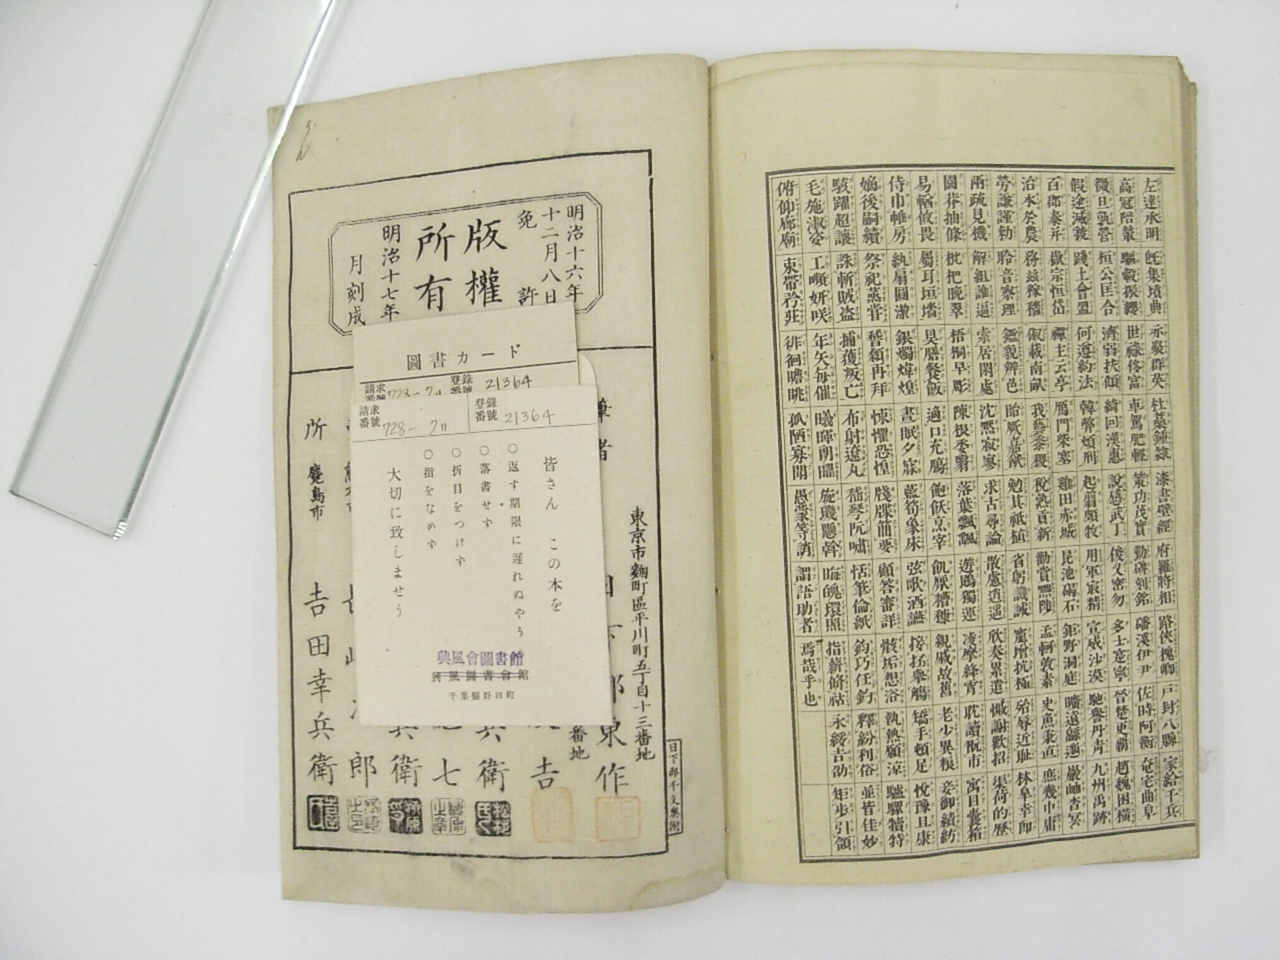 左達承明 既集墳典 亦聚群英 杜藁鍾隷 漆書壁經 府羅將相 路俠槐卿 戸封八縣 家給千兵
高冠陪輦 驅轂振纓 世祿侈富 車駕肥輕 策功茂實 勒碑刻銘 磻溪伊尹 佐時阿衡 奄宅曲阜
微旦孰營 桓公匡合 濟弱扶傾 綺回漢惠 說感武丁 俊乂密勿 多士寔寧 晉楚更覇 趙魏困橫
假途滅虢 踐土會盟 何遵約法 韓弊煩刑 起翦頗牧 用軍最精 宣威沙漠 馳譽丹青 九州禹跡
百郡秦并 嶽宗恒岱 禪主云亭 鴈門紫塞 雞田赤城 昆池碣石 鉅野洞庭 曠遠緜邈 巖岫杳冥
治本於農 務茲稼穡 俶載南畝 我藝黍稷 稅熟貢新 勸賞黜陟 孟軻敦素 史魚秉直 庶幾中庸
勞謙謹勅 聆音察理 鑑貌辨色 貽厥嘉猷 勉其祗植 省躬譏誡 寵增抗極 殆辱近恥 林皐幸即
兩疏見機 解組誰逼 索居閑處 沈默寂寥 求古尋論 散慮逍遙 欣奏累遣 慼謝歡招 渠荷的歷
園莽抽條 枇杷晚翠 梧桐早彫 陳根委翳 落葉飄颻 遊鵾獨運 凌摩絳霄 耽讀翫市 寓目囊箱
易輶攸畏 屬耳垣墻 具膳餐飯 適口充腸 飽飫烹宰 飢厭糟糠 親戚故舊 老少異粮 妾御績紡
侍巾帷房 紈扇圓潔 銀燭煒煌 晝眠夕寐 藍筍象床 弦歌酒讌 接杯舉觴 矯手頓足 悅豫且康
嫡後嗣續 祭祀蒸嘗 稽顙再拜 悚懼恐惶 牋牒簡要 顧答審詳 骸垢想浴 執熱願涼 驢騾犢特
駭躍超驤 誅斬賊盜 捕獲叛亡 布射遼丸 嵇琴阮嘯 恬筆倫紙 鈞巧任釣 釋紛利俗 並皆佳妙
毛施淑姿 工嚬妍咲 年矢每催 曦暉朗曜 旋璣懸斡 晦魄環照 指薪脩祜 永綏吉劭 矩步引領
俯仰廊廟 束帶矜莊 徘徊瞻眺 孤陋寡聞 愚蒙等誚 謂語助者 焉哉乎也
明治十六年
十二月八日
免許
版權
所有
明治十七年
月刻成
東京市麴町區平川町五丁目十三番地
筆者
日下部東作
番地
吉
兵衛
七
兵衛
郎
鹿島市
所
吉田幸兵衛
日下部不文樂衛
圖書カード
請求番號 728-7ll
登錄番號 21364
請求番號 728-7ll
登錄番號 21364
皆さん この本を
○返す期限に遅れぬやう
○落書せず
○折目をつけず
○指をなめず
大切に致しませう
興風會圖書館
興風圖書會館
千葉縣野田町